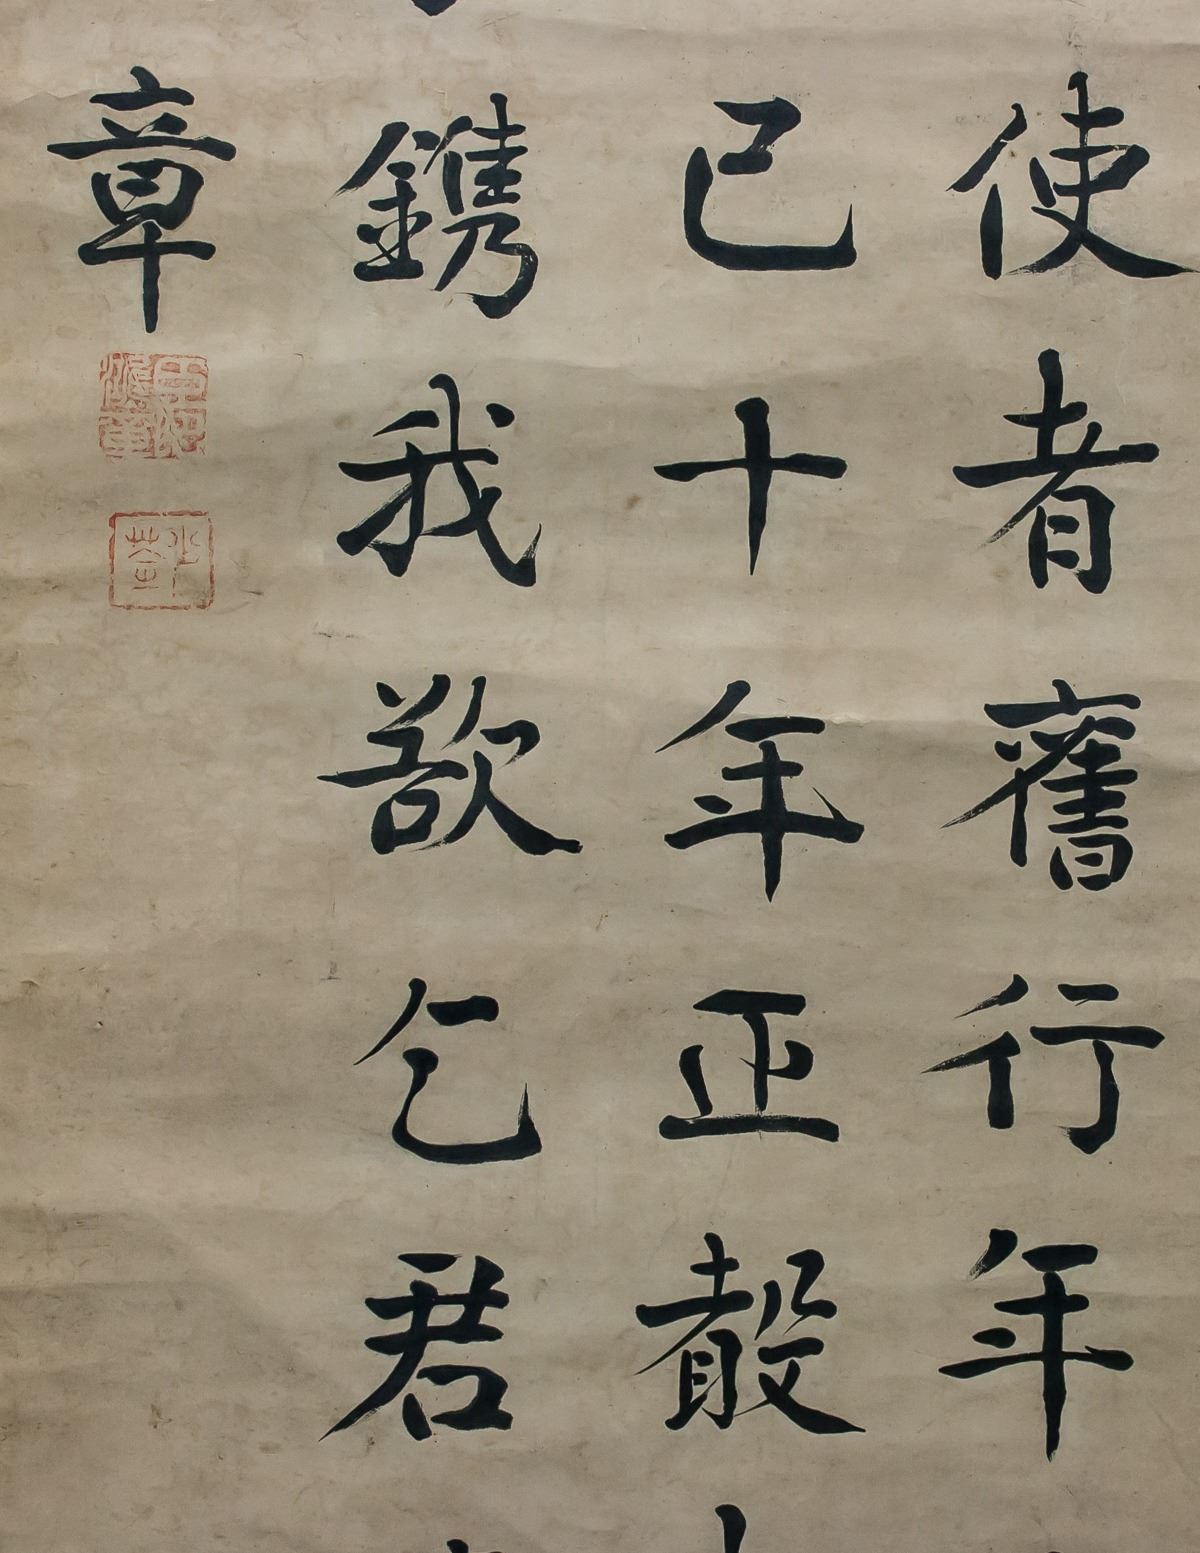 使者舊行年
已十年正㪚
鐫我欲乞君
章